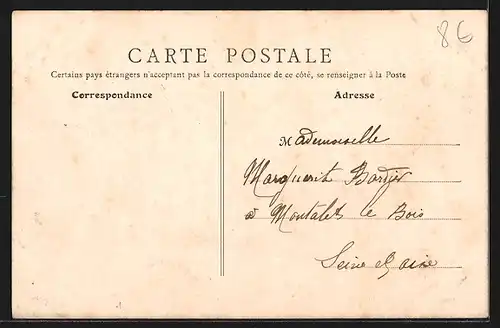 86
CARTE POSTALE
Certains pays étrangers n'acceptant pas la correspondance de ce côté, se renseigner à la Poste
Correspondance
Adresse
Mademoiselle
Marguerit Bardjer
à Montalet le Bois
Seine et oise